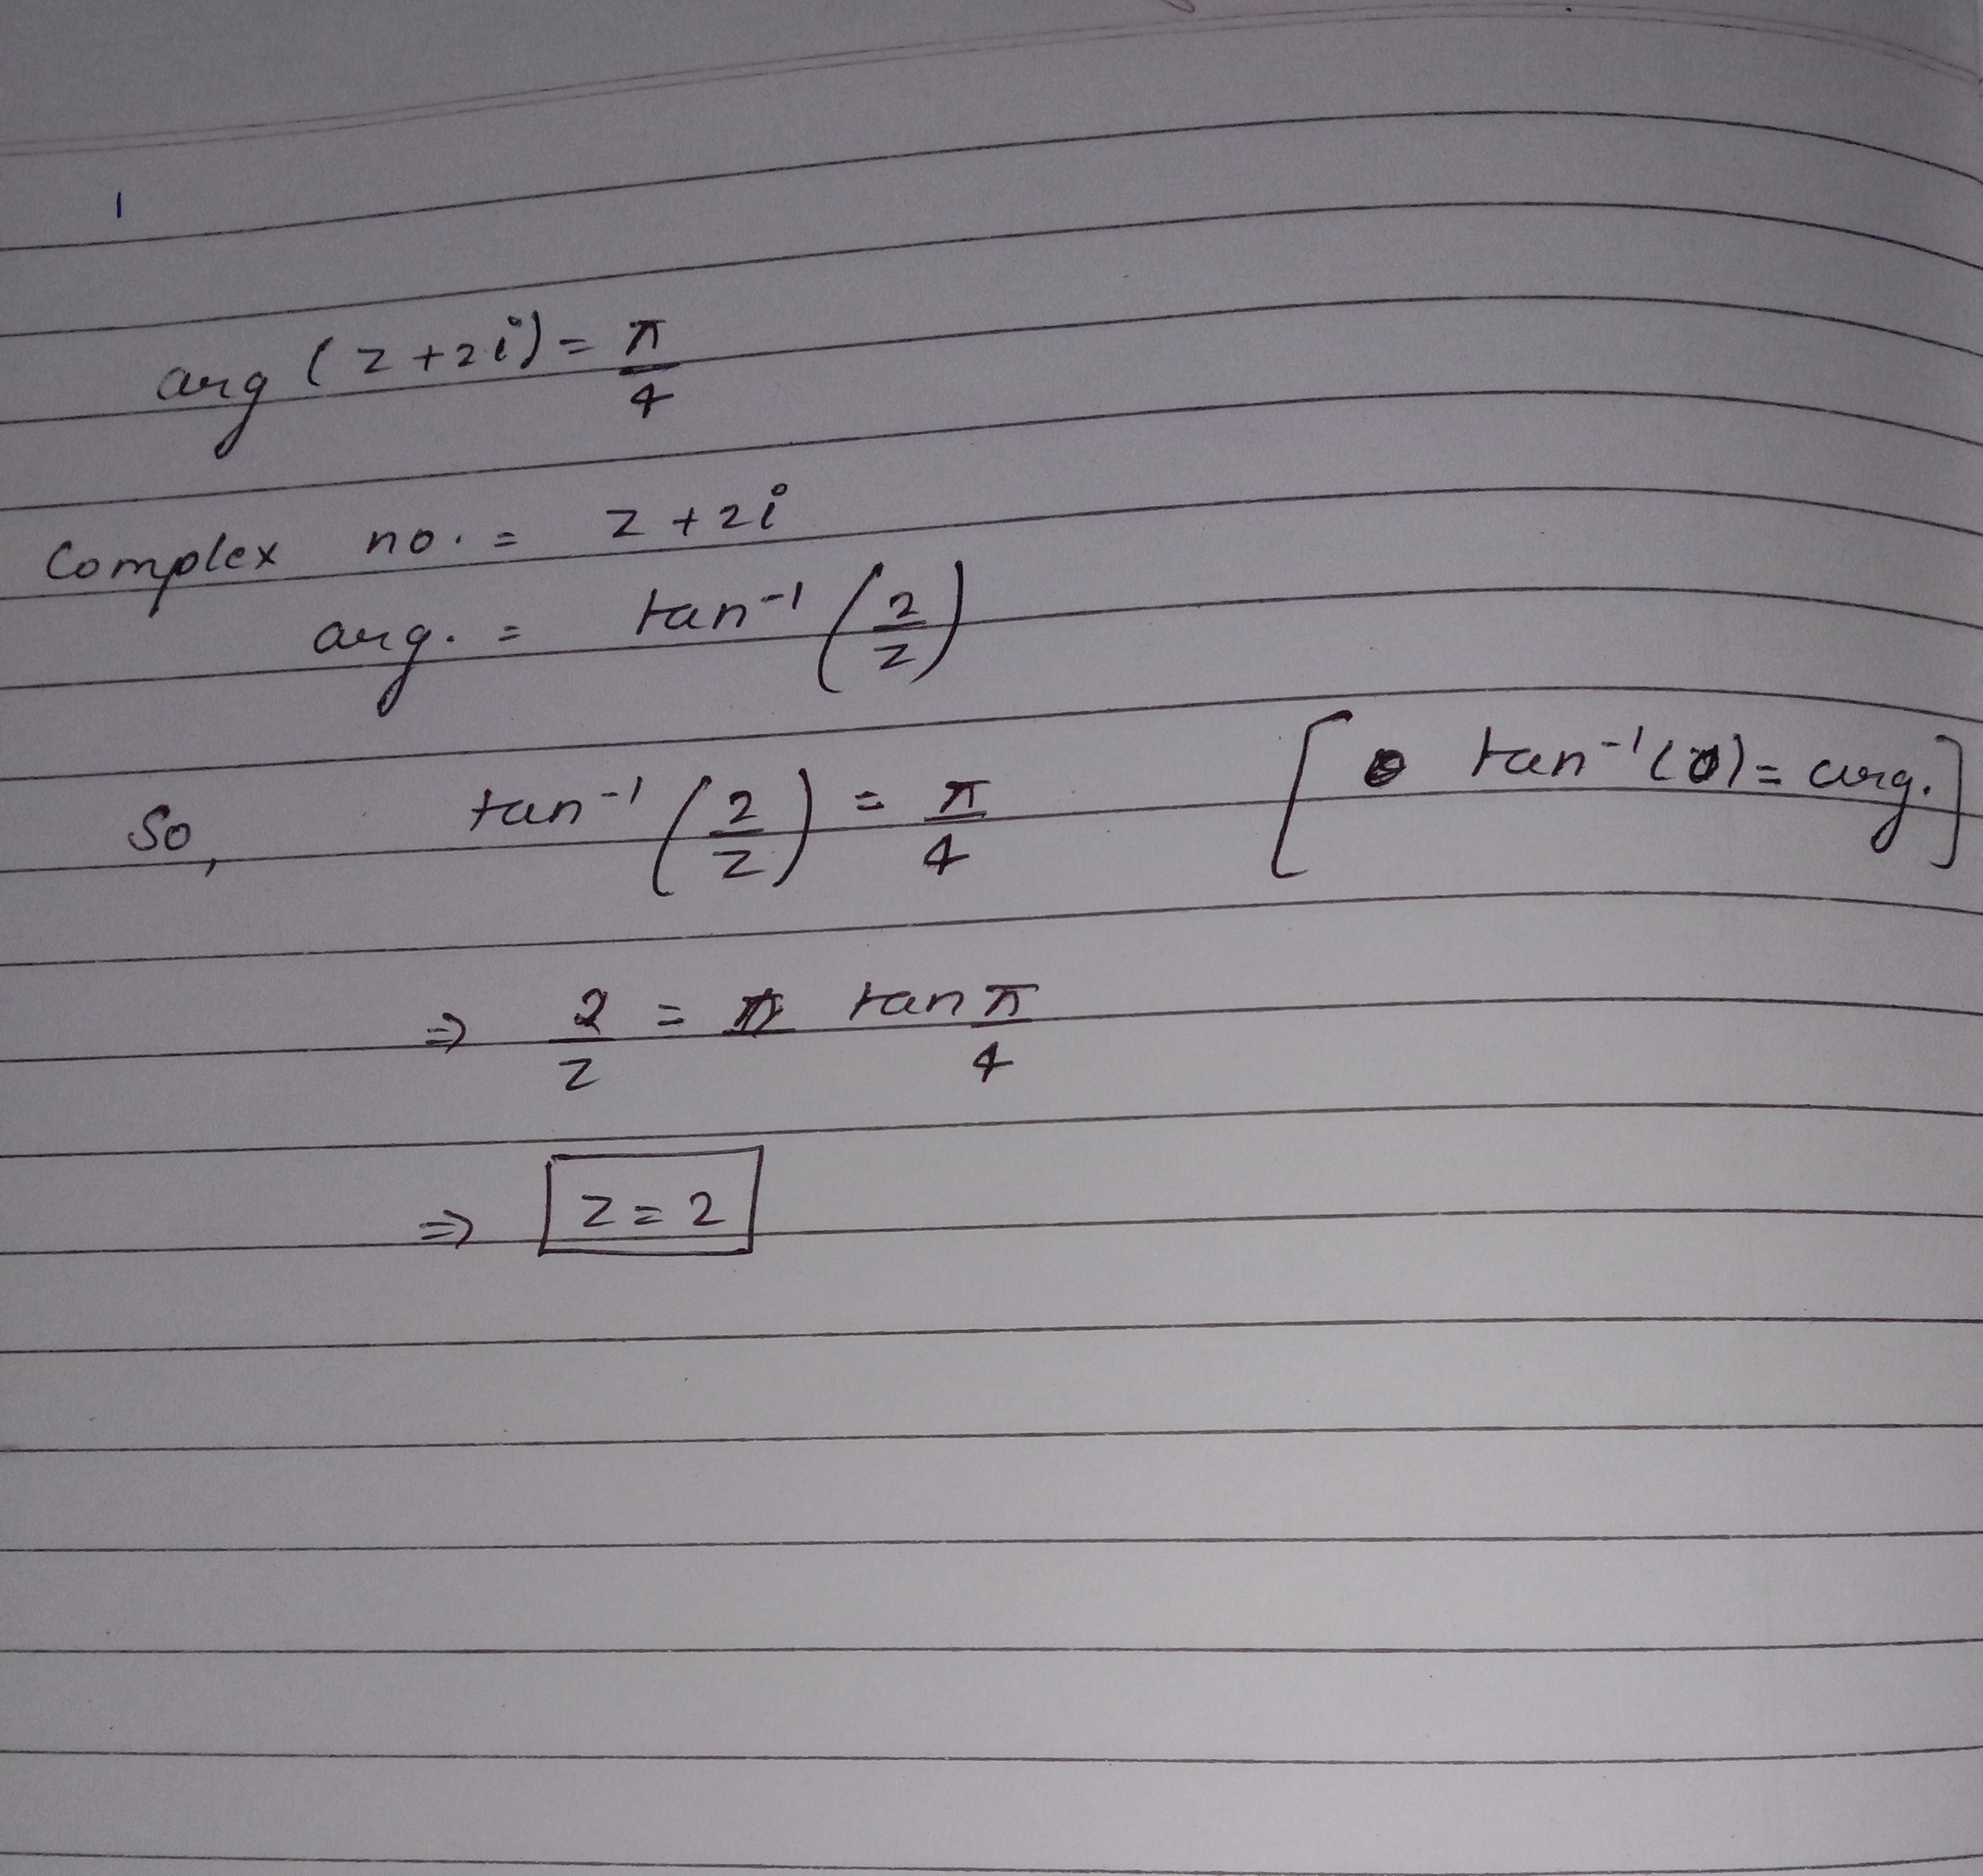 1
arg (z+2i) = π/4
Complex no. = z+2i
arg. = tan⁻¹ (2/z)
So, tan⁻¹ (2/z) = π/4 [θ tan⁻¹(θ) = arg.]
⇒ 2/z = tan π/4
⇒ z = 2